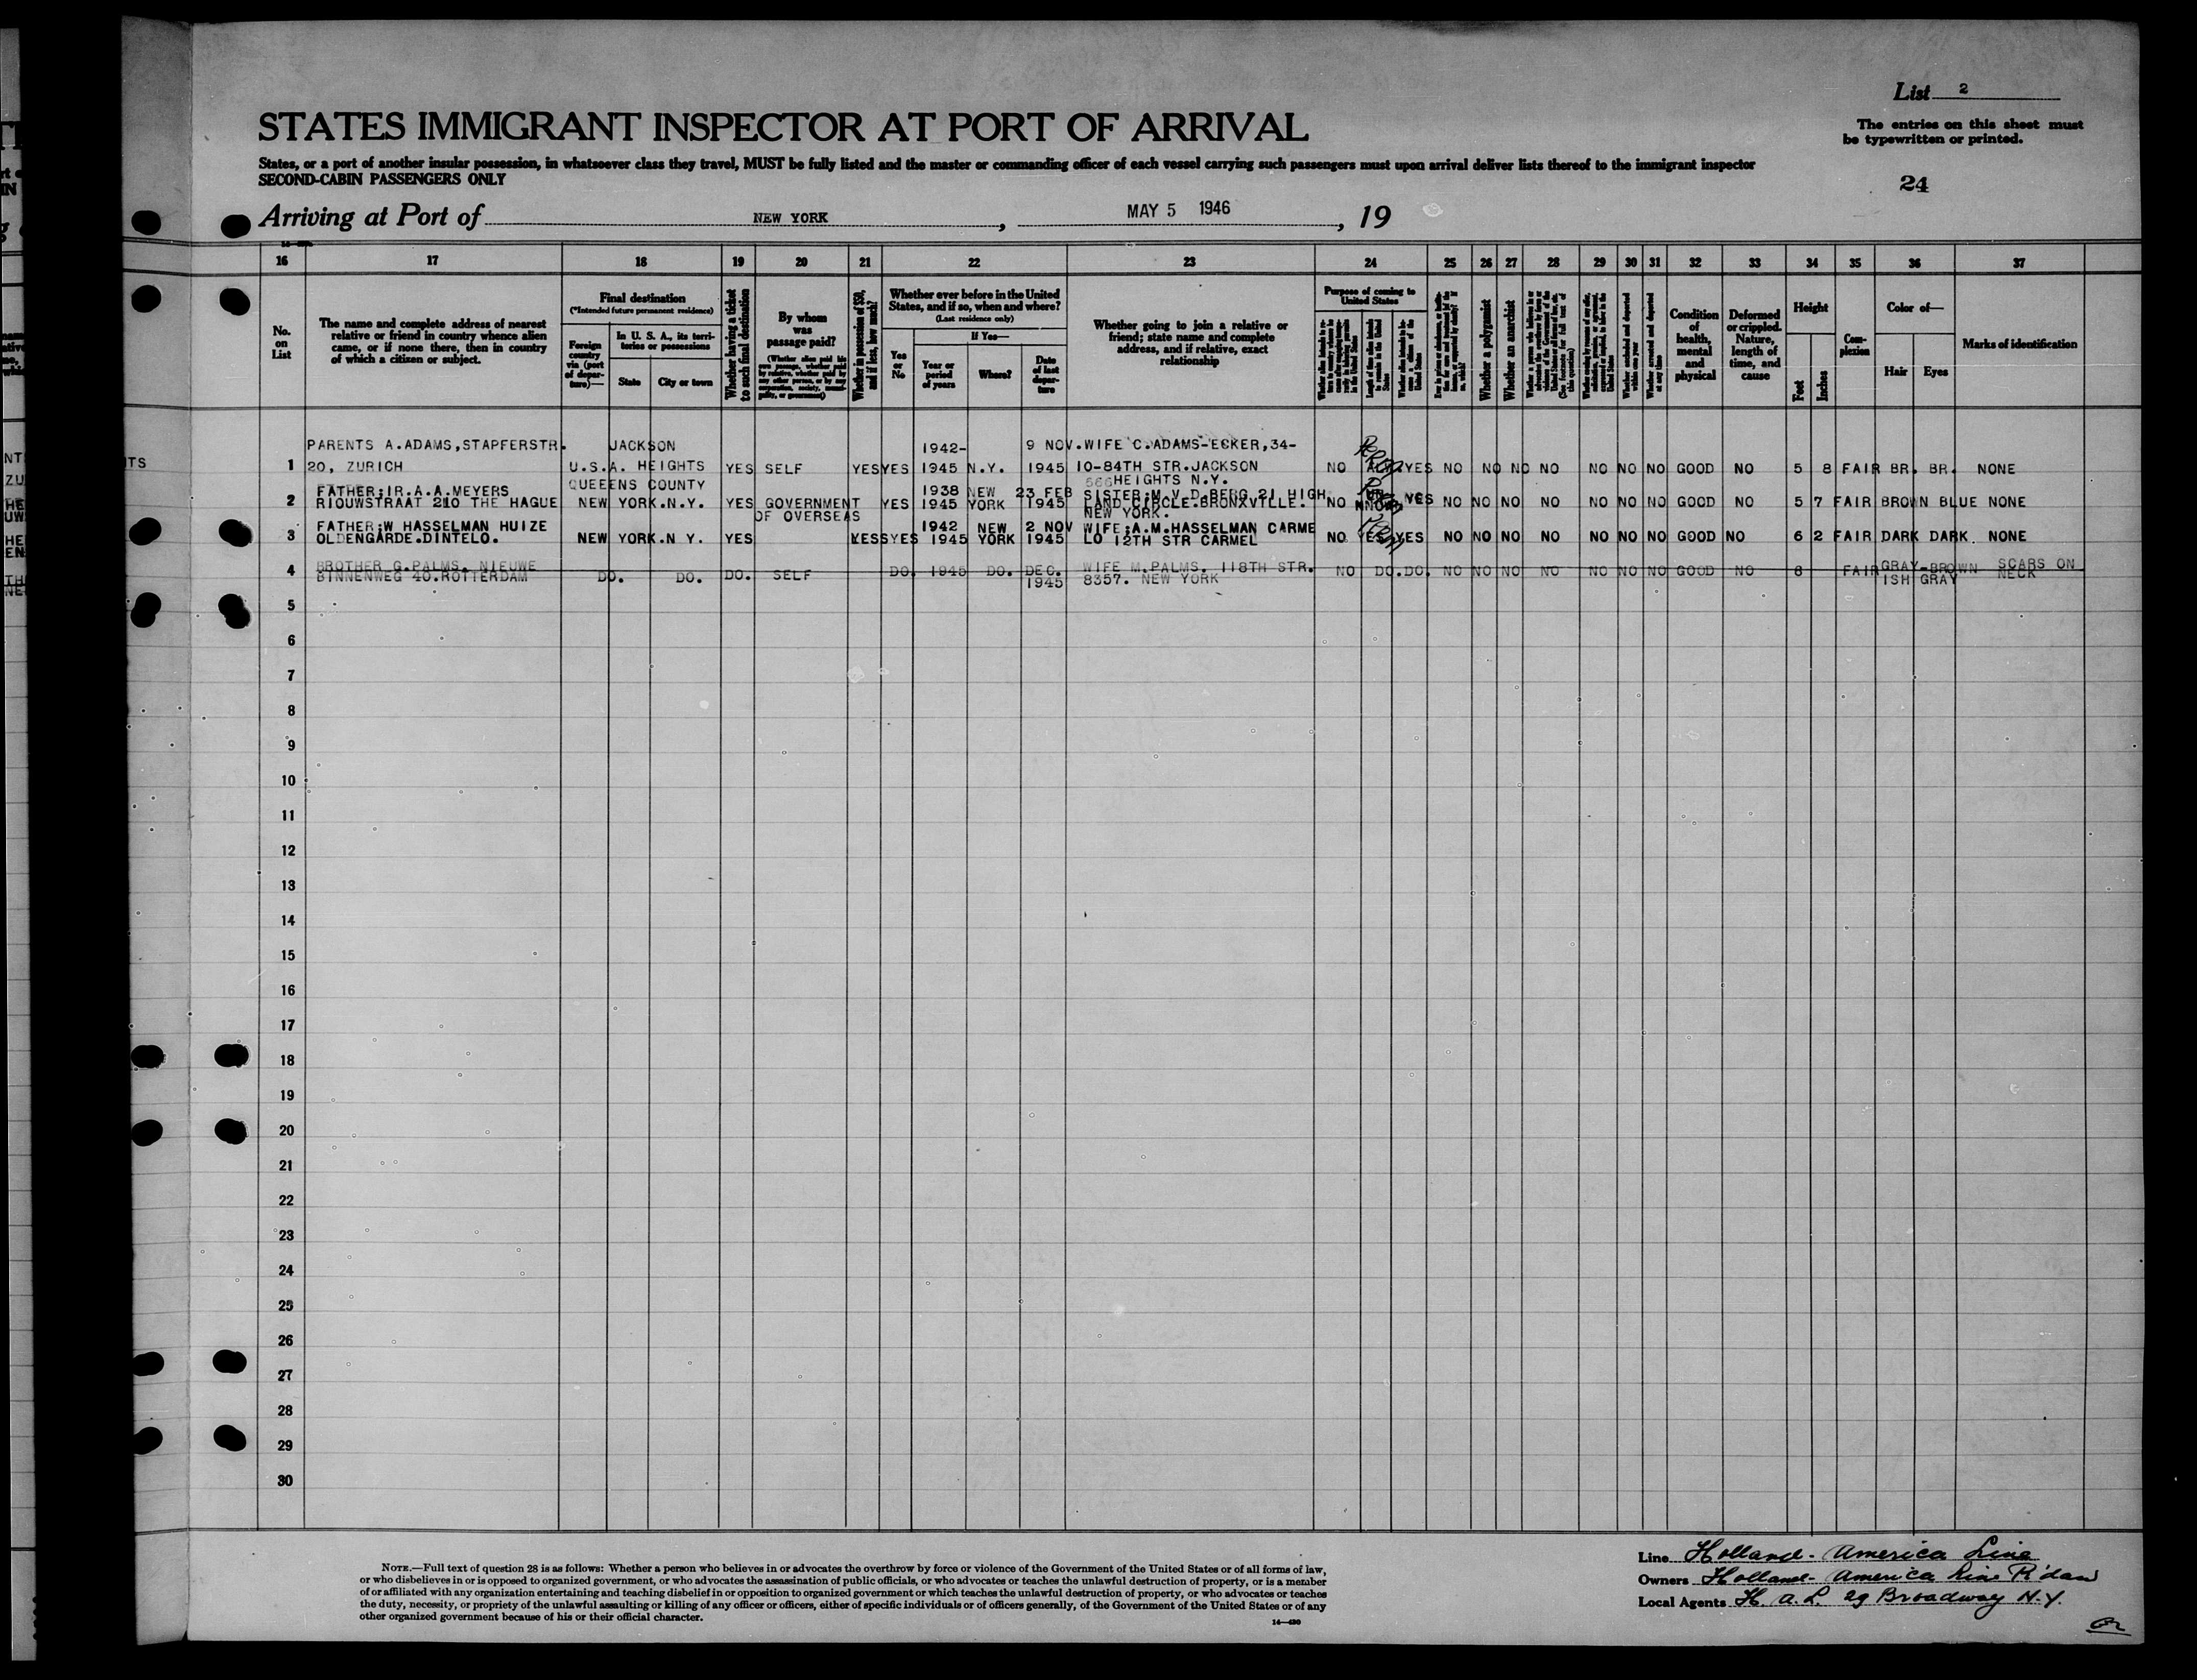 List 2
The entries on this sheet must
be typewritten or printed.
24
STATES IMMIGRANT INSPECTOR AT PORT OF ARRIVAL
States, or a port of another insular possession, in whatsoever class they travel, MUST be fully listed and the master or commanding officer of each vessel carrying such passengers must upon arrival deliver lists thereof to the immigrant inspector
SECOND-CABIN PASSENGERS ONLY
Arriving at Port of NEW YORK, MAY 5 1946, 19
16 17 18 19 20 21 22 23 24 25 26 27 28 29 30 31 32 33 34 35 36 37
No.
on
List
The name and complete address of nearest
relative or friend in country whence alien
came, or if none there, then in country
of which a citizen or subject.
Final destination
(*Intended future permanent residence)
Foreign
country
via (port
of depar-
ture)—
In U. S. A., its terri-
tories or possessions
State
City or town
Whether having a ticket
to such final destination
By whom
was
passage paid?
(Whether alien paid his
own passage, whether paid
by relative, whether paid by
any other person, or by any
corporation, society, munici-
pality, or government)
Whether in possession of $50,
and if less, how much?
Whether ever before in the United
States, and if so, when and where?
(Last residence only)
Yes
or
No
If Yes—
Year or
period
of years
Where?
Date
of last
depar-
ture
Whether going to join a relative or
friend; state name and complete
address, and if relative, exact
relationship
Purpose of coming to
United States
Whether a polygamist
Whether an anarchist
Whether arrested and deported
at any time
Condition
of
health,
mental
and
physical
Deformed
or crippled.
Nature,
length of
time, and
cause
Height
Feet
Inches
Com-
plexion
Color of—
Hair
Eyes
Marks of identification
PARENTS A.ADAMS,STAPFERSTR. JACKSON 1942- 9 NOV. WIFE C.ADAMS-ECKER,34-
1 20, ZURICH U.S.A. HEIGHTS YES SELF YES YES 1945 N.Y. 1945 10-84TH STR.JACKSON NO YES NO NO NO NO NO NO NO GOOD NO 5 8 FAIR BR. BR. NONE
QUEEENS COUNTY HEIGHTS N.Y.
FATHER;IR.A.A.MEYERS 1938 NEW 23 FEB SISTER;M.V.D.BERG 21 HIGH
2 RIOUWSTRAAT 210 THE HAGUE NEW YORK.N.Y. YES GOVERNMENT YES 1945 YORK 1945 LAND CIRCLE.BRONXVILLE. NO YES NO NO NO NO NO NO NO GOOD NO 5 7 FAIR BROWN BLUE NONE
OF OVERSEAS NEW YORK.
FATHER;W HASSELMAN HUIZE 1942 NEW 2 NOV WIFE;A.M.HASSELMAN CARME
3 OLDENGARDE.DINTELO. NEW YORK.N Y. YES YES YES 1945 YORK 1945 LO 12TH STR CARMEL NO YES YES NO NO NO NO NO NO NO GOOD NO 6 2 FAIR DARK DARK. NONE
BROTHER G.PALMS. NIEUWE WIFE M.PALMS. 118TH STR. SCARS ON
4 BINNENWEG 40.ROTTERDAM DO. DO. DO. SELF DO. 1945 DO. DEC. NO DO. DO. NO NO NO NO NO NO NO GOOD NO 6 FAIR GRAY-BROWN NECK
1945 8357. NEW YORK ISH GRAY
5
6
7
8
9
10
11
12
13
14
15
16
17
18
19
20
21
22
23
24
25
26
27
28
29
30
NOTE.—Full text of question 28 is as follows: Whether a person who believes in or advocates the overthrow by force or violence of the Government of the United States or of all forms of law,
or who disbelieves in or is opposed to organized government, or who advocates the assassination of public officials, or who advocates or teaches the unlawful destruction of property, or is a member
of or affiliated with any organization entertaining and teaching disbelief in or opposition to organized government or which teaches the unlawful destruction of property, or who advocates or teaches
the duty, necessity, or propriety of the unlawful assaulting or killing of any officer or officers, either of specific individuals or of officers generally, of the Government of the United States or of any
other organized government because of his or their official character.
14—430
Line Holland-America Line
Owners Holland-America Line R'dam
Local Agents H. A. L. 29 Broadway N.Y.